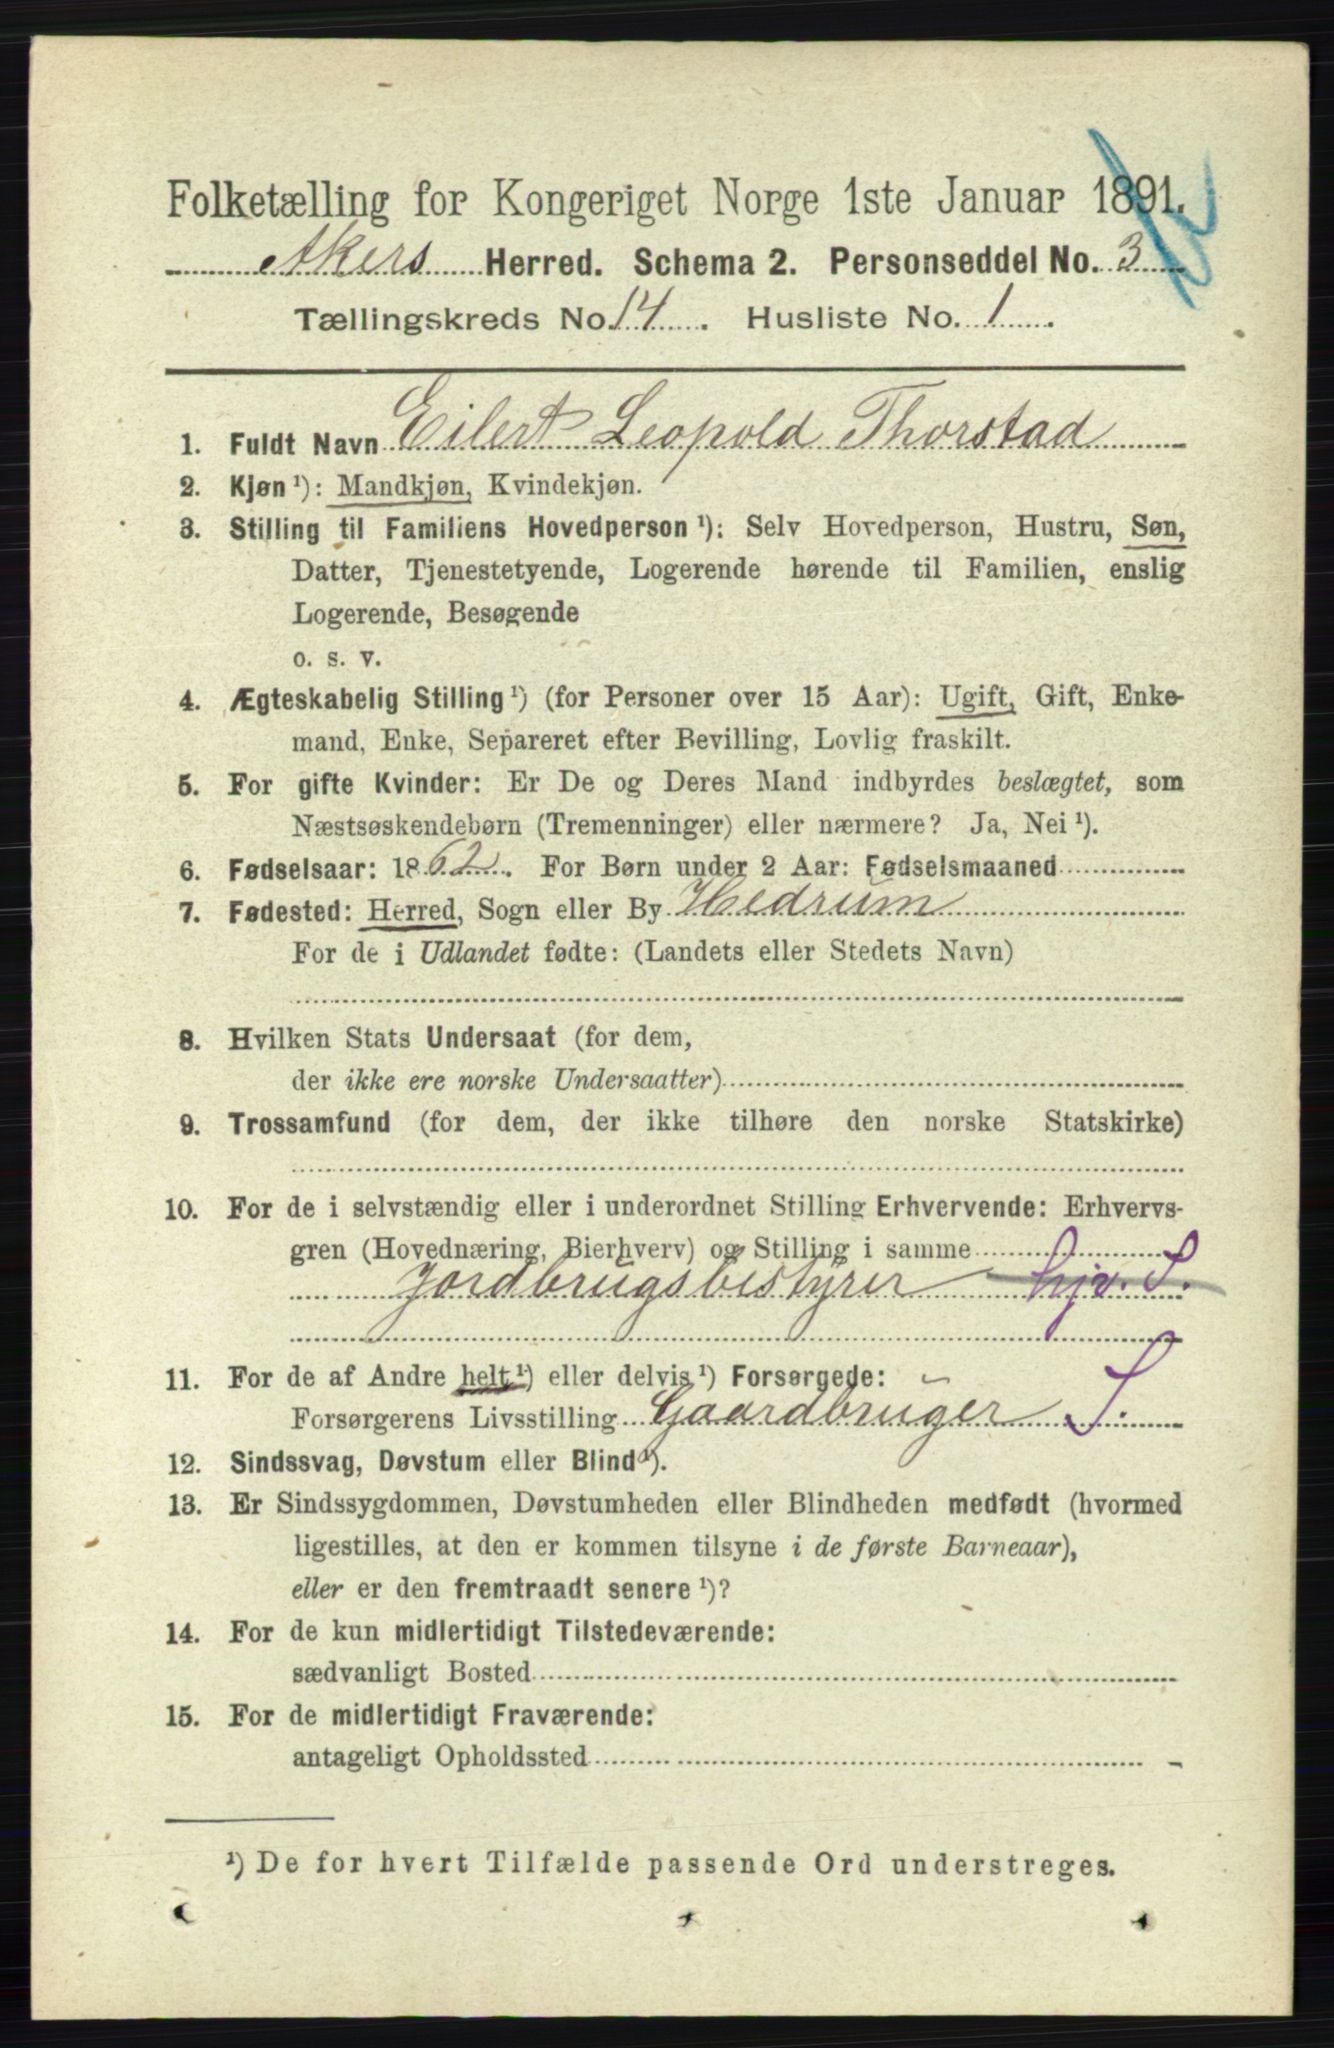 Folketælling for Kongeriget Norge 1ste Januar 1891.
Akers Herred. Schema 2. Personseddel No. 3
Tællingskreds No. 14. Husliste No. 1.
1. Fuldt Navn Eilert Leopold Thorstad
2. Kjøn ¹): Mandkjøn, Kvindekjøn.
3. Stilling til Familiens Hovedperson ¹): Selv Hovedperson, Hustru, Søn,
Datter, Tjenestetyende, Logerende hørende til Familien, enslig
Logerende, Besøgende
o. s. v.
4. Ægteskabelig Stilling ¹) (for Personer over 15 Aar): Ugift, Gift, Enke-
mand, Enke, Separeret efter Bevilling, Lovlig fraskilt.
5. For gifte Kvinder: Er De og Deres Mand indbyrdes beslægtet, som
Næstsøskendebørn (Tremenninger) eller nærmere? Ja, Nei ¹).
6. Fødselsaar: 1862. For Børn under 2 Aar: Fødselsmaaned
7. Fødested: Herred, Sogn eller By Hedrum
For de i Udlandet fødte: (Landets eller Stedets Navn)
8. Hvilken Stats Undersaat (for dem,
der ikke ere norske Undersaatter)
9. Trossamfund (for dem, der ikke tilhøre den norske Statskirke)
10. For de i selvstændig eller i underordnet Stilling Erhvervende: Erhvervs-
gren (Hovednæring, Bierhverv) og Stilling i samme
Jordbrugsbestyrer hjv. S.
11. For de af Andre helt ¹) eller delvis ¹) Forsørgede:
Forsørgerens Livsstilling Gaardbruger S.
12. Sindssvag, Døvstum eller Blind ¹).
13. Er Sindssygdommen, Døvstumheden eller Blindheden medfødt (hvormed
ligestilles, at den er kommen tilsyne i de første Barneaar),
eller er den fremtraadt senere ¹)?
14. For de kun midlertidigt Tilstedeværende:
sædvanligt Bosted
15. For de midlertidigt Fraværende:
antageligt Opholdssted
¹) De for hvert Tilfælde passende Ord understreges.